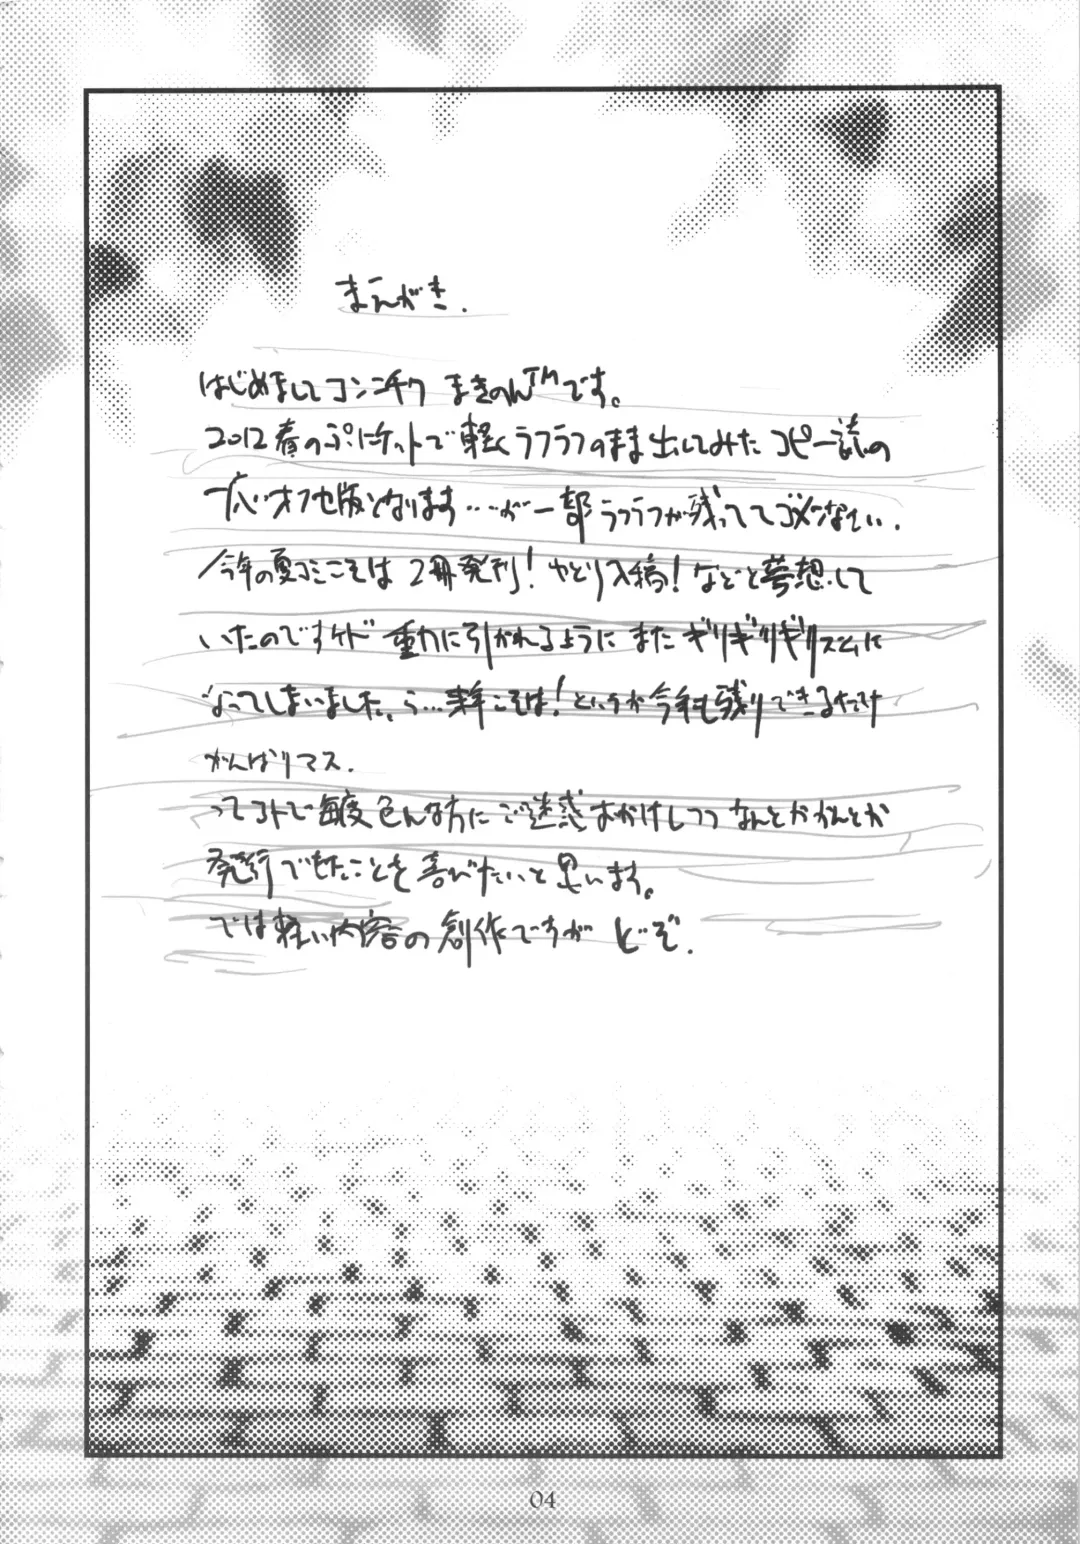 まえがき.
はじめましてコンニチワ まきのんTMです。
2012春のぷにケットで軽くラフラフのまま出してみた コピー誌の
オフセ版となります…が一部ラフラフが残っててゴメンなさい.
今年の夏コミこそは 2冊発刊! やどり入稿! などと夢想して
いたのですけド 重力に引かれるように また ギリギリギリズムに
なってしまいました。ら…来年こそは! というか今年も残りできるだけ
がんばりマス.
ってコトで毎度色んな方にご迷惑おかけしつつ なんとかかんとか
発行できたことを喜びたいと思います。
では軽い内容の創作ですが どぞ.
04